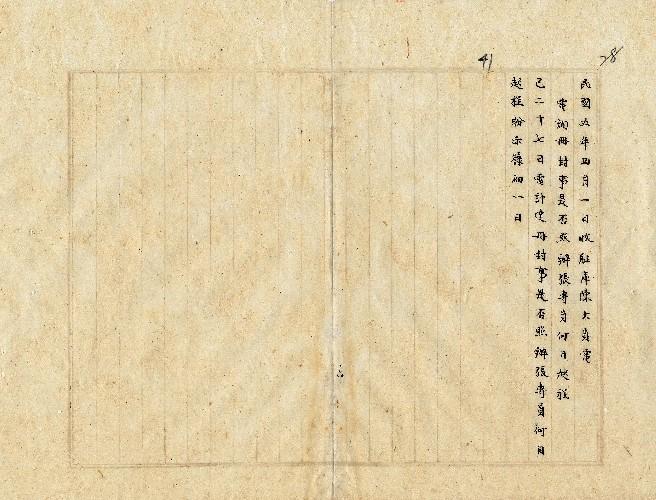 28
41
民國五年四月一日收駐庫陳大員電
電詢冊封事是否照辦張專員何日起程
己二十七日電計達冊封事是否照辦張專員何日
起程盼示籙初一日